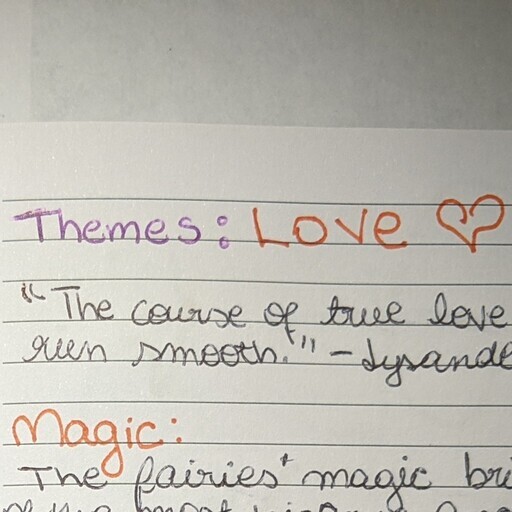 Themes: Love ♡
"The course of true love
run smooth." - Lysande
Magic:
The fairies' magic bri